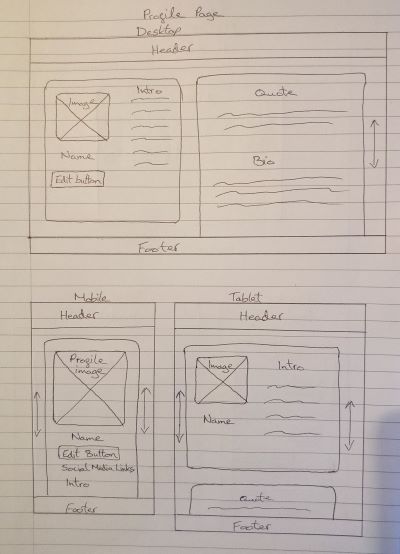 Profile Page
Desktop
Header
Image
Intro
Name
Edit button
Quote
Bio
Footer
Mobile
Header
Profile
image
Name
Edit Button
Social Media Links
Intro
Footer
Tablet
Header
Image
Intro
Name
Quote
Footer